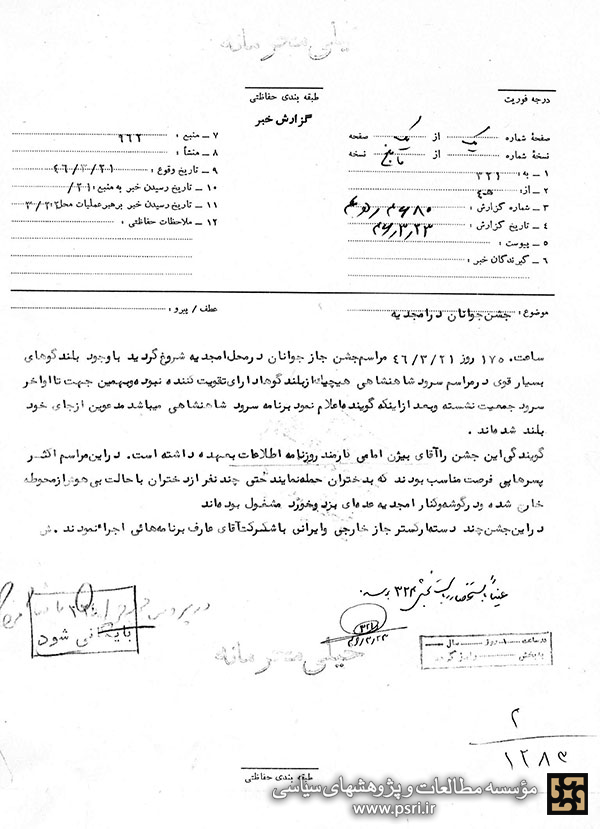 خیلی محرمانه
درجه فوریت
طبقه بندی حفاظتی
گزارش خبر
صفحهٔ شماره یک از یک صفحه
نسخهٔ شماره از پنج نسخه
۱ ــ به : ۳۲۱
۲ ــ از :
۳ ــ شماره گزارش :
۴ ــ تاریخ گزارش : ۴۶٫۳٫۲۳
۵ ــ پیوست :
۶ ــ گیرندگان خبر :
۷ ــ منبع : ۹۶۲
۸ ــ منشأ :
۹ ــ تاریخ وقوع : ۴۶/۳/۲۱
۱۰ ــ تاریخ رسیدن خبر به منبع : ۲۱/
۱۱ ــ تاریخ رسیدن خبر برهبر عملیات محل :
۱۲ ــ ملاحظات حفاظتی :
موضوع : جشن جوانان در امجدیه
عطف / پیرو :
ساعت ۱۷۵۰ روز ۴۶/۳/۲۱ مراسم جشن جاز جوانان در محل امجدیه شروع گردید با وجود بلندگوهای
بسیار قوی در مراسم سرود شاهنشاهی هیچیک از بلندگوها دارای تقویت کننده نبوده و بهمین جهت تا اواخر
سرود جمعیت نشسته و بعد از اینکه گوینده اعلام نمود برنامه سرود شاهنشاهی میباشد مدعوین از جای خود
بلند شده اند .
گویندگی این جشن را آقای بیژن امامی کارمند روزنامه اطلاعات بعهده داشته است . در این مراسم اکثر
پسرهایی فرصت مناسب بودند که به دختران حمله نمایند حتی چند نفر از دختران با حالت بی هوش از محوطه
خارج شده و در گوشه و کنار امجدیه عده ای بزد و خورد مشغول بوده اند
در این جشن چند دسته ارکستر جاز خارجی و ایرانی با شرکت آقای عارف برنامه هائی اجراء نمودند . ش
۳۲۱
بایگانی شود
در ساعت روز سال
به بخش واصل گردید
خیلی محرمانه
۲
۱۲۸۳
طبقه بندی حفاظتی
مؤسسه مطالعات و پژوهشهای سیاسی
www.psri.ir